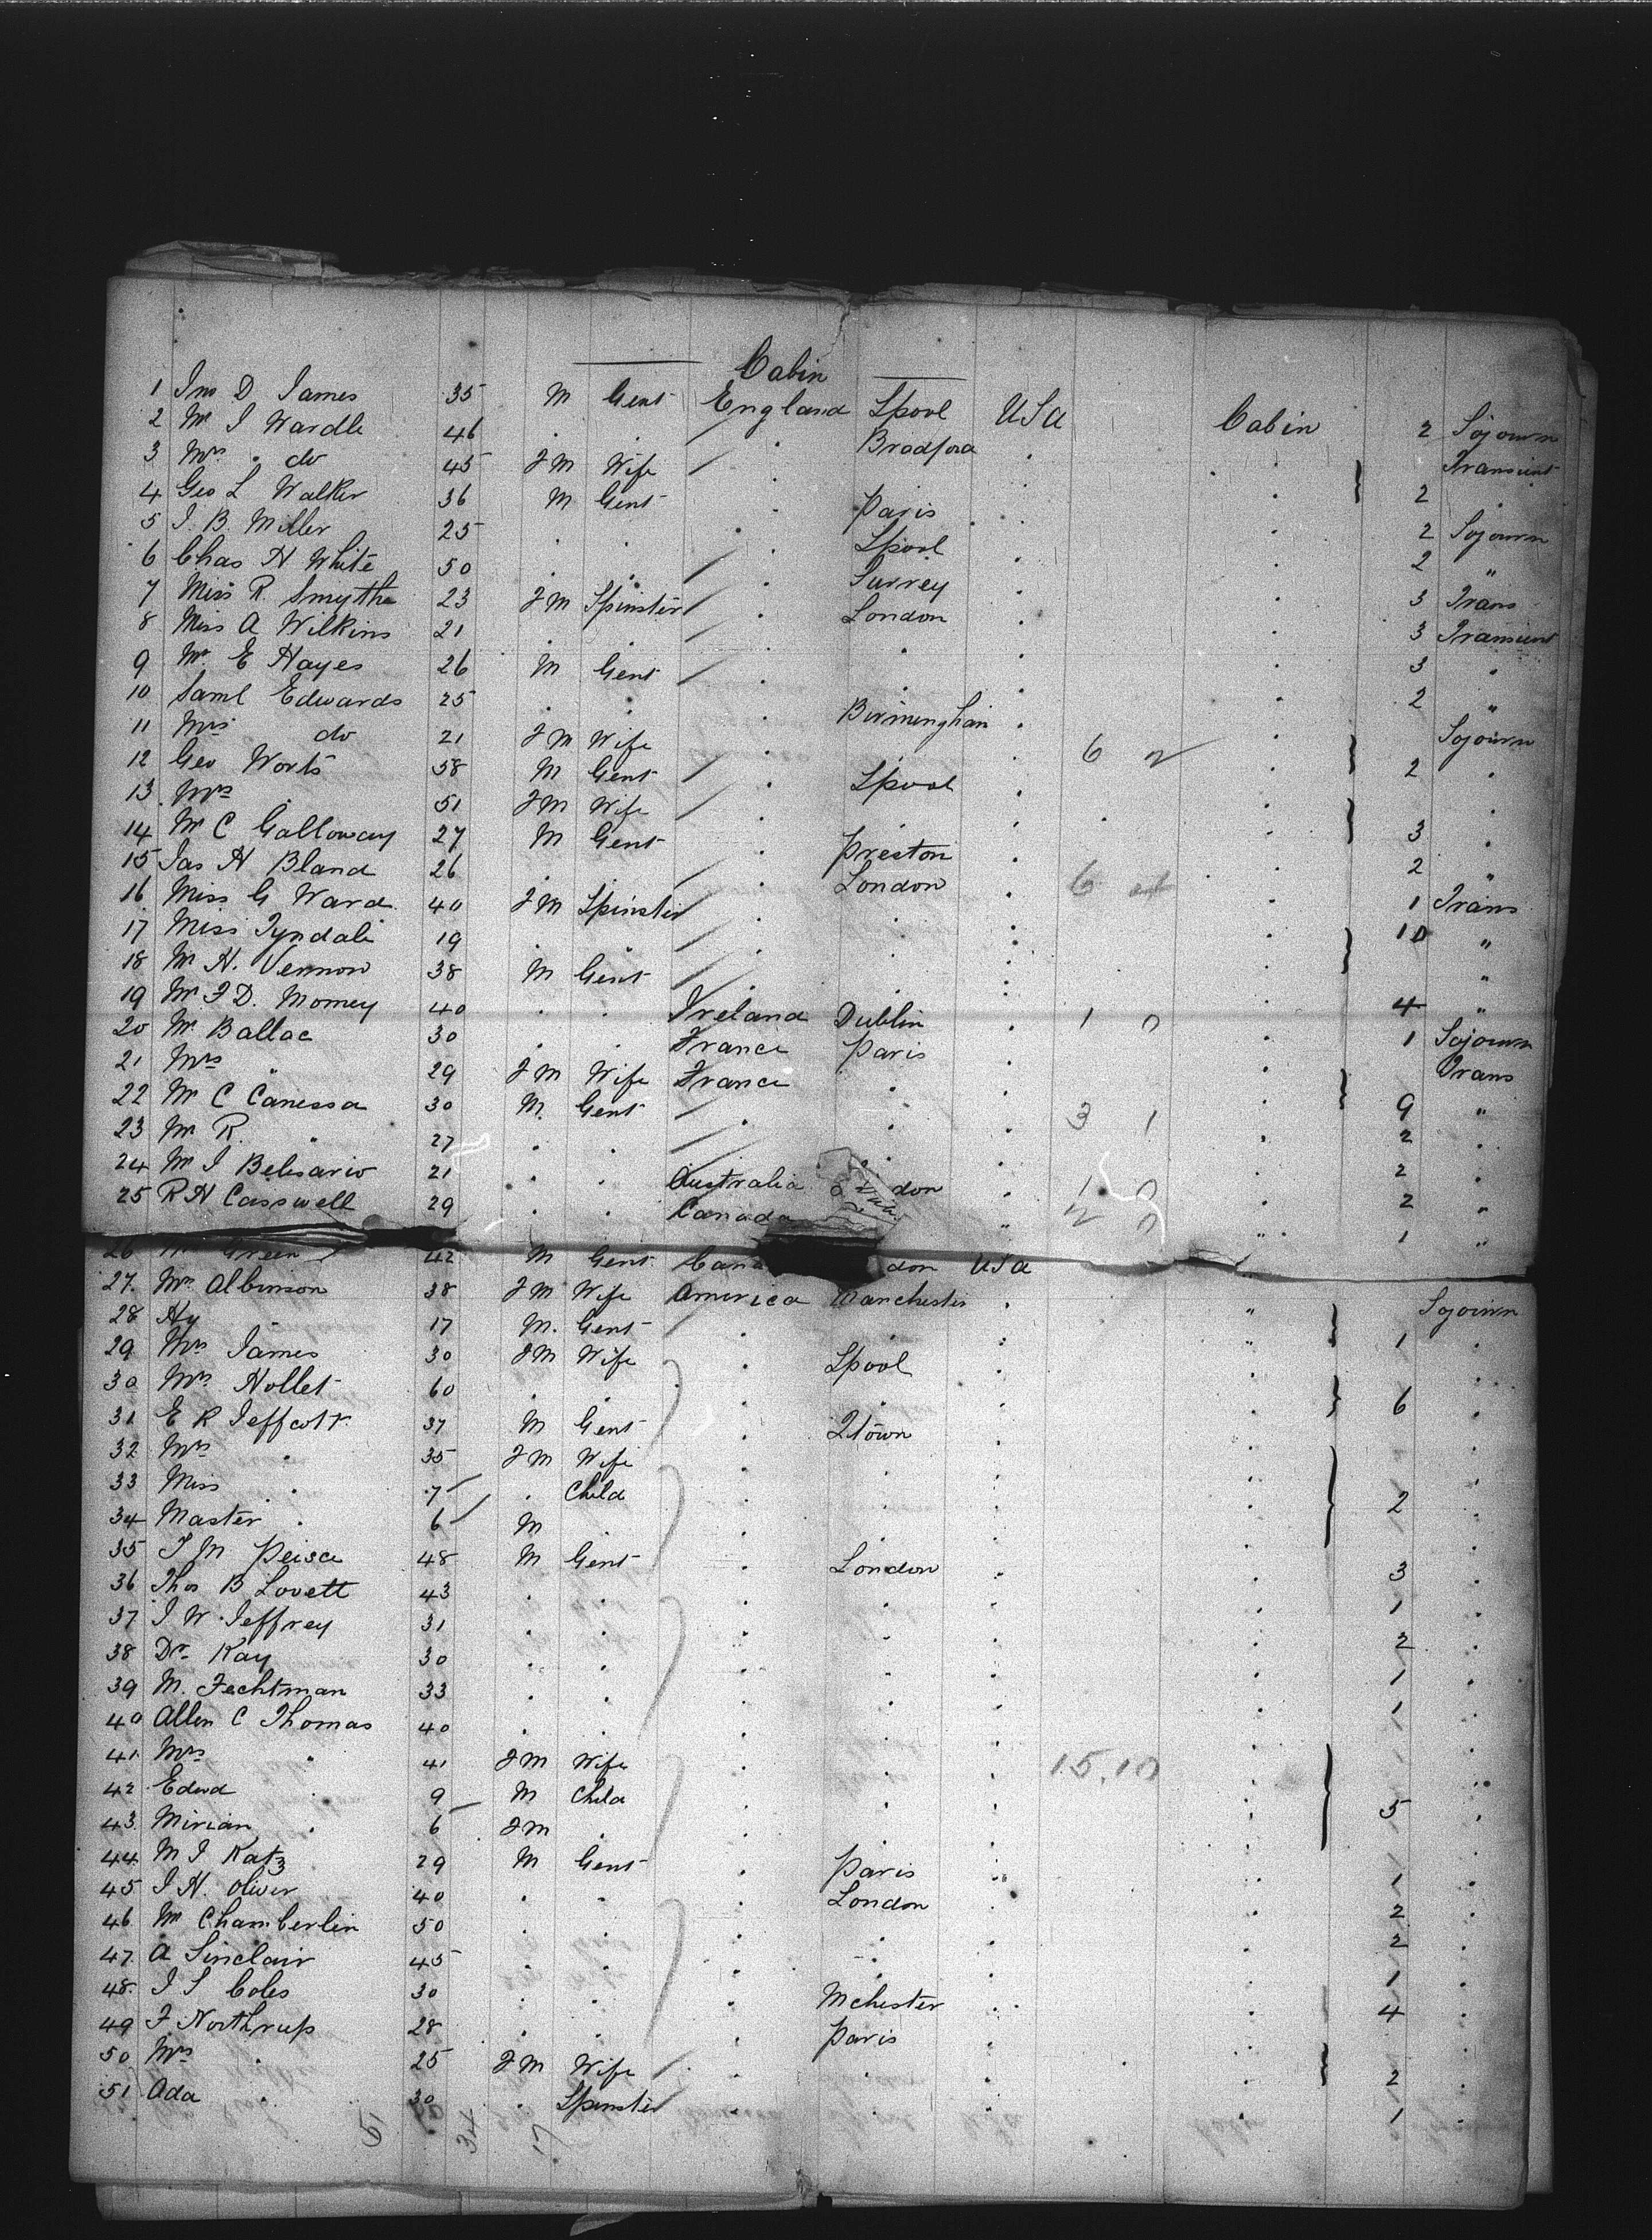 Cabin
1 Jno D James 35 M Gent England Lpool USA Cabin 2 Sojourn
2 Mr J Wardle 46 . . . Bradford . . Transient
3 Mrs " do 45 FM Wife . . . . 2 .
4 Geo L Walker 36 M Gent . Paris . . 2 Sojourn
5 J. B. Miller 25 . . . Lpool . . 2 "
6 Chas H White 50 . . . Surrey . . 3 Trans
7 Miss R. Smythe 23 FM Spinster . London . . 3 Transient
8 Miss A Wilkins 21 . . . . . . 3 "
9 Mr E Hayes 26 M Gent . . . . 2 "
10 Saml Edwards 25 . . . Birmingham . . Sojourn
11 Mrs do 21 FM Wife . . . 6 2 . 2 .
12 Geo Worts 58 M Gent . Lpool . . .
13 Mrs . 51 FM Wife . . . . 3 .
14 Mr C Galloway 27 M Gent . Preston . . 2 "
15 Jas H Bland 26 . . . London . 6 . 1 Trans
16 Miss G Ward 40 FM Spinster . . . . 10 "
17 Miss Tyndale 19 . . . . . . "
18 Mr H. Vernon 38 M Gent . . . . 4 "
19 Mr F D. Momey 40 . . Ireland Dublin . 1 0 . 1 Sojourn
20 Mr Ballac 30 . . France Paris . . Trans
21 Mrs " 29 FM Wife France . . . 9 "
22 Mr C Canessa 30 M. Gent . . . 3 1 . 2 .
23 Mr R. " 27 . . . . . . 2 .
24 Mr J Belisario 21 . . Australia don . 1 0 . 2 "
25 R H Casswell 29 . . Canada " 2 0 " 1 "
26 Mr Green 42 M Gent Cana don USA "
27. Mrs Albinson 38 FM Wife America Manchester . " Sojourn
28 Hy " 17 M. Gent . . . " 1 .
29 Mrs James 30 FM Wife . Lpool . . .
30 Mrs Hollet 60 . . . . . . 6 .
31. E R Jeffcott 37 M Gent . Qtown . . .
32. Mrs . 35 FM Wife . . . . .
33 Miss . 7 . Child . . . . 2 .
34 Master . 6 M . . . . . .
35 T M Peisce 48 M Gent . London . . 3 .
36 Thos B Lovett 43 . . . . . . 1 .
37 J W. Jeffrey 31 . . . . . . 2 .
38 Dr Kay 30 . . . . . . 1 .
39 M. Fechtman 33 . . . . . . 1 .
40 Allen C Thomas 40 . . . . . . .
41. Mrs " 41 FM Wife . . . 15.10 . .
42 Edwd . 9 M Child . . . . 5 .
43. Mirian . 6 FM . . . . . .
44. M J Katz 29 M Gent . Paris . . 1 .
45 J H. Oliver 40 . . . London . . 2 .
46 Mr Chamberlin 50 . . . . . . 2 .
47. A Sinclair 45 . . . . . . 1 .
48. J S Coles 30 . . . Mchester . . 4 .
49 F Northrup 28 . . . Paris . . .
50 Mrs . 25 FM Wife . . . . 2 .
51 Ada . 30 . Spinster . . . . 1 .
51 34 17